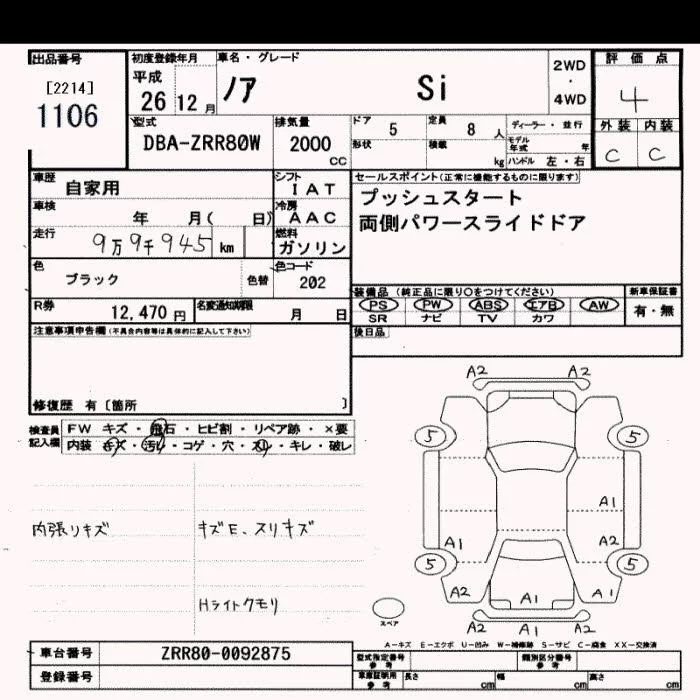 出品番号
[2214]
1106
初度登録年月
平成
26 12 月
車名・グレード
ノア Si
2WD
・
4WD
評価点
4
外装 内装
C C
型式
DBA-ZRR80W
排気量
2000
CC
ドア 5 定員 8 人
形状 積載 kg
ディーラー・並行
モデル年式 年
ハンドル 左・右
車歴 自家用
車検 年 月( 日)
走行 9万9千945 km
シフト IAT
冷房 AAC
燃料 ガソリン
セールスポイント(正常に機能するものに限ります)
プッシュスタート
両側パワースライドドア
色 ブラック 色替
色コード 202
R券 12,470 円
名変通知期限 月 日
装備品 (純正品に限り○をつけてください)
PS PW ABS エアB AW
SR ナビ TV カワ
新車保証書
有・無
後日品
注意事項申告欄(不具合内容等は具体的に記入して下さい)
修復歴 有〔箇所 〕
検査員記入欄
FW キズ・飛石・ヒビ割・リペア跡・×要
内装 キズ・汚レ・コゲ・穴・スレ・キレ・破レ
内張リキズ
キズE、スリキズ
Hライトクモリ
A2 A2
5 5
A1
A1 A2
5 5
A2 A1 A1
A2 A1 A2
スペア
A-キズ E-エクボ U-凹み W-補修跡 S-サビ C-腐食 XX-交換済
車台番号 ZRR80-0092875
登録番号
型式指定番号 参考
類別区分番号 参考
車庫証明用 参考
長さ cm 幅 cm 高さ cm